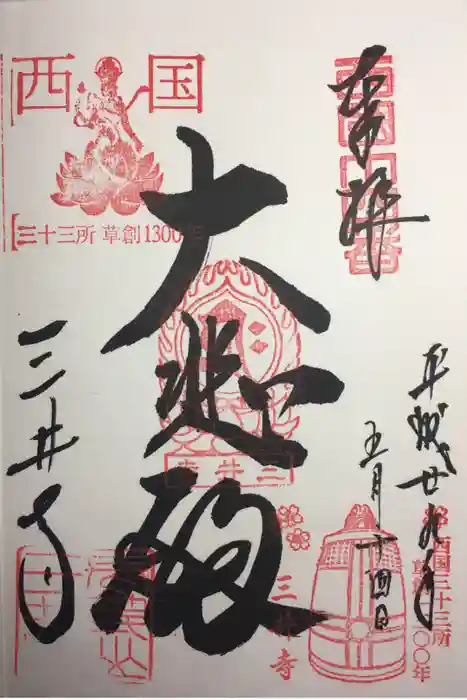 奉拝
平成廿九年
五月十四日
大悲殿
三井寺
西国
三十三所 草創1300年
三井寺
西国三十三所